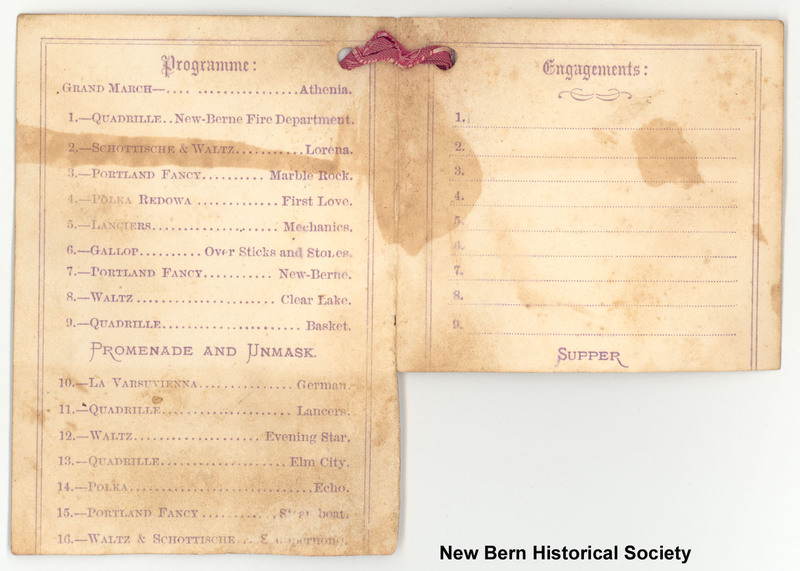 Programme:
GRAND MARCH—.... ................Athenia.
1.—QUADRILLE..New-Berne Fire Department.
2.—SCHOTTISCHE & WALTZ...........Lorena.
3.—PORTLAND FANCY.......... Marble Rock.
4.—POLKA REDOWA ............ First Love.
5.—LANCIERS................... Mechanics.
6.—GALLOP.......... Over Sticks and Stones.
7.—PORTLAND FANCY........... New-Berne.
8.—WALTZ...................... Clear Lake.
9.—QUADRILLE...................... Basket.
PROMENADE AND UNMASK.
10.—LA VARSUVIENNA.............. German.
11.—QUADRILLE..................... Lancers.
12.—WALTZ.................... Evening Star.
13.—QUADRILLE.................... Elm City.
14.—POLKA...........................Echo.
15.—PORTLAND FANCY........... boat.
16.—WALTZ & SCHOTTISCHE...
Engagements:
1.
2.
3.
4.
5.
6.
7.
8.
9.
SUPPER
New Bern Historical Society